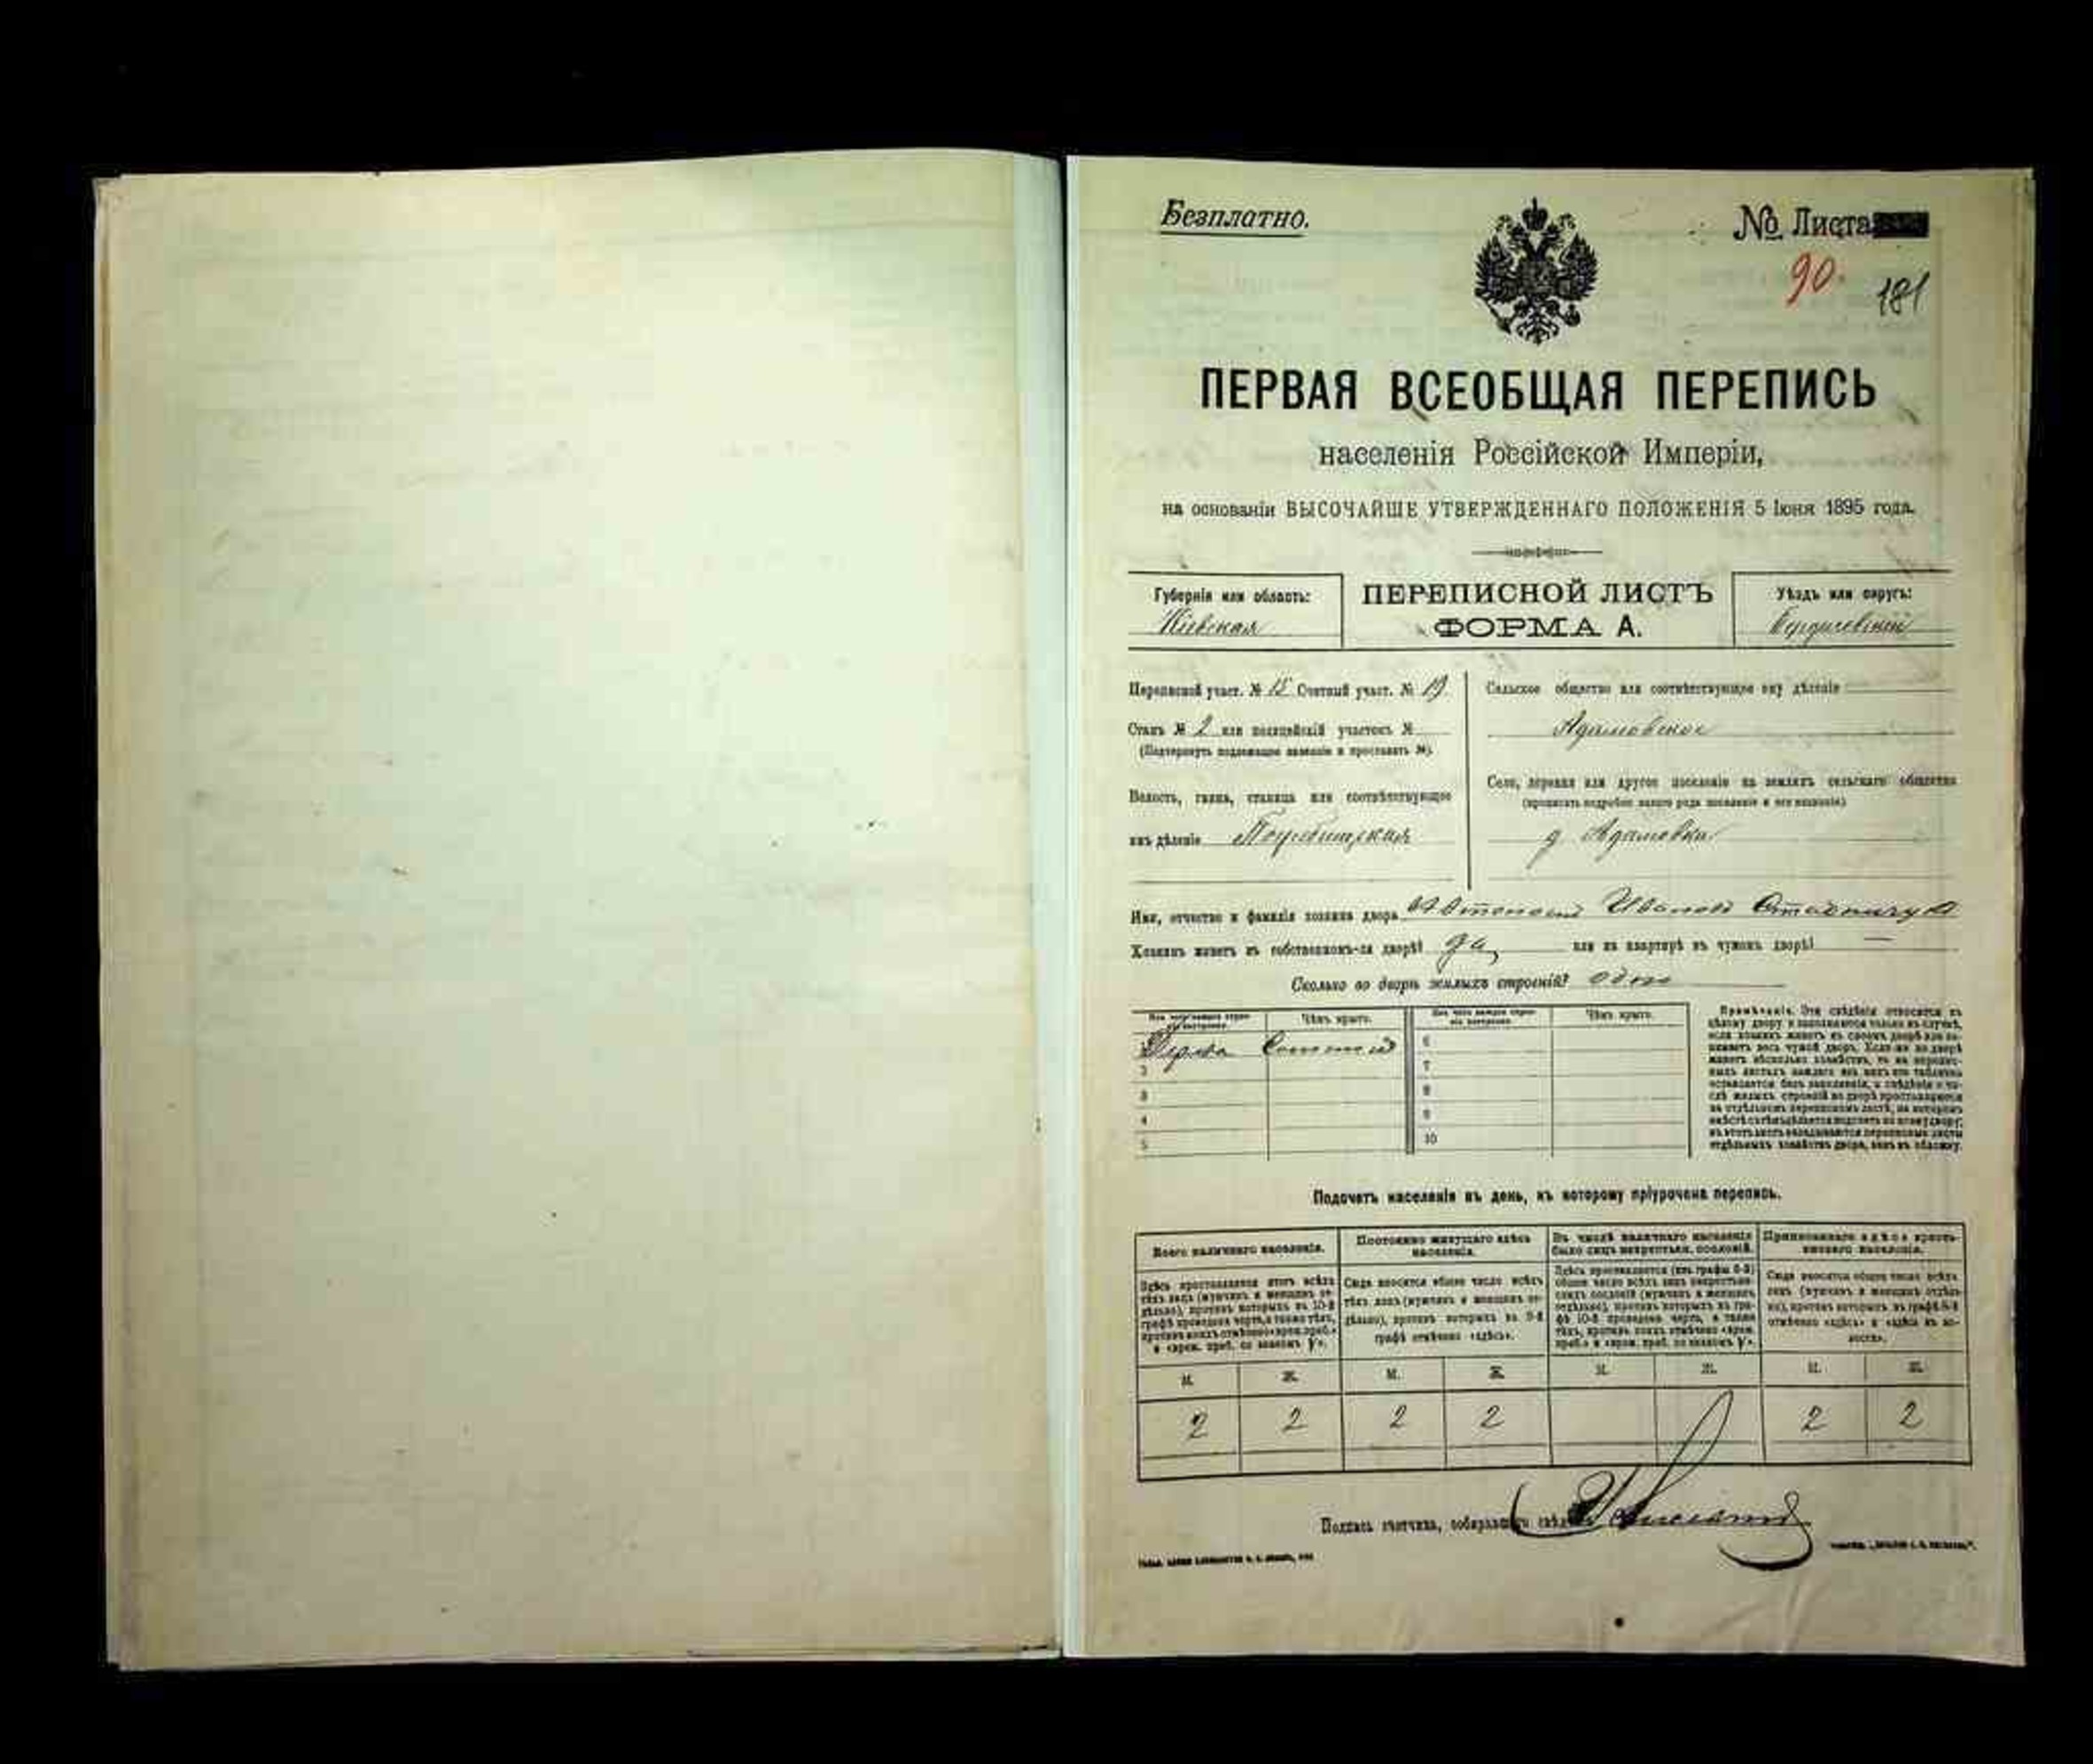 Безплатно.
№ Листа
90.
181
ПЕРВАЯ ВСЕОБЩАЯ ПЕРЕПИСЬ
населенія Россійской Имперіи,
на основаніи ВЫСОЧАЙШЕ УТВЕРЖДЕННАГО ПОЛОЖЕНІЯ 5 Іюня 1895 года.
Губернія или область:
Кіевская
ПЕРЕПИСНОЙ ЛИСТЪ
ФОРМА А.
Уѣздъ или округъ:
Бердичевскій
Переписной участ. № 15 Счетный участ. № 19
Станъ № 2 или полицейскій участокъ №
(Подчеркнуть подлежащее названіе и проставить №).
Волость, гмина, станица или соотвѣтствующее
имъ дѣленіе Погребищская
Сельское общество или соотвѣтствующее ему дѣленіе
Адамовское
Село, деревня или другое поселеніе на земляхъ сельскаго общества
(прописать подробно какого рода поселеніе и его названіе)
д Адамовка
Имя, отчество и фамилія хозяина двора Иванов
Хозяинъ живетъ въ собственномъ-ли дворѣ? да, или на квартирѣ въ чужомъ дворѣ? —
Сколько во дворѣ жилыхъ строеній? одно
Изъ чего каждое строеніе построено.
Чѣмъ крыто.
Изъ чего каждое строеніе построено.
Чѣмъ крыто.
Дерева Соломой
2
3
4
5
6
7
8
9
10
Примѣчаніе. Эти свѣдѣнія относятся къ
цѣлому двору и заполняются только въ случаѣ,
если хозяинъ живетъ въ своемъ дворѣ или за-
нимаетъ весь чужой дворъ. Если-же во дворѣ
живетъ нѣсколько хозяйствъ, то на перепис-
ныхъ листахъ каждаго изъ нихъ эта табличка
оставляется безъ заполненія, а свѣдѣнія о чи-
слѣ жилыхъ строеній во дворѣ проставляются
на отдѣльномъ переписномъ листѣ, на которомъ
Подсчетъ населенія въ день, къ которому пріурочена перепись.
Всего наличнаго населенія.
Постоянно живущаго здѣсь
населенія.
Въ числѣ наличнаго населенія
было лицъ некрестьян. сословій.
Приписаннаго здѣсь кресть-
янскаго населенія.
Здѣсь проставляется итогъ всѣхъ
тѣхъ лицъ (мужчинъ и женщинъ от-
дѣльно), противъ которыхъ въ 10-й
графѣ проведена черта, а также тѣхъ,
противъ коихъ отмѣчено «врем. преб.»
и «врем. преб. со знакомъ V».
Сюда вносится общее число всѣхъ
тѣхъ лицъ (мужчинъ и женщинъ от-
дѣльно), противъ которыхъ въ 9-й
графѣ отмѣчено «здѣсь».
Здѣсь проставляется (изъ графы 6-й)
общее число всѣхъ лицъ некрестьян-
скихъ сословій (мужчинъ и женщинъ
отдѣльно), противъ которыхъ въ гра-
фѣ 10-й проведена черта, а также
тѣхъ, противъ коихъ отмѣчено «врем.
преб.» и «врем. преб. со знакомъ V».
Сюда вносится общее число всѣхъ
лицъ (мужчинъ и женщинъ отдѣль-
но), противъ которыхъ въ графѣ 8-й
отмѣчено «здѣсь» и «здѣсь въ во-
лости».
М. Ж. М. Ж. М. Ж. М. Ж.
2 2 2 2 2 2
Подпись счетчика, собиравшаго свѣд